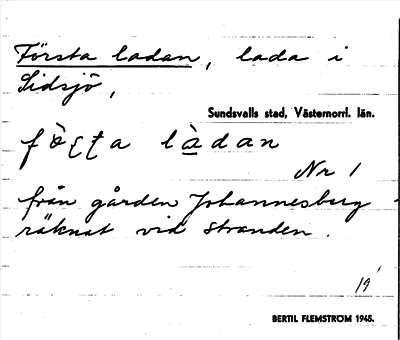 Första ladan, lada i
Sidsjö,
Sundsvalls stad, Västernorrl. län.
fö̀ʂʈa làdan
Nr 1
från gården Johannesberg
räknat vid stranden.
19
BERTIL FLEMSTRÖM 1945.